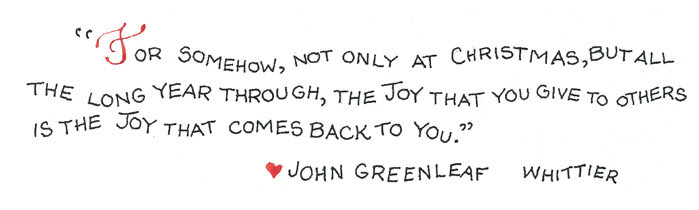 “For somehow, not only at Christmas, but all
the long year through, the Joy that you give to others
is the Joy that comes back to you.”
♥ John Greenleaf Whittier